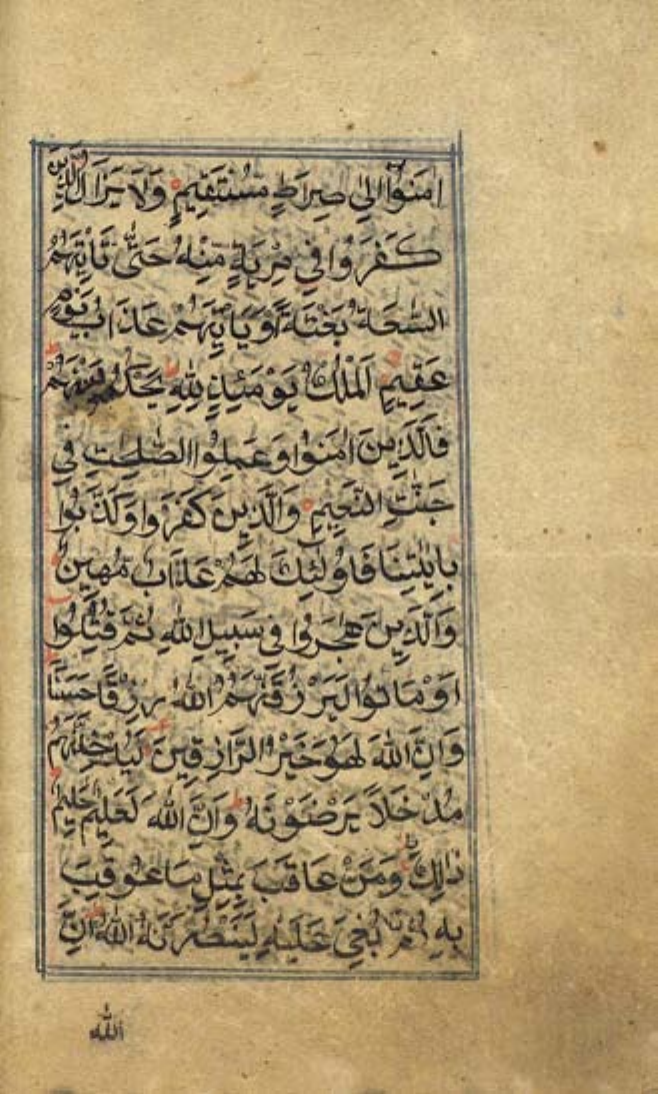 اٰمَنُوْٓا اِلٰى صِرَاطٍ مُسْتَقِيْمٍ وَلَا يَزَالُ الَّذِيْنَ
كَفَرُوْا فِيْ مِرْيَةٍ مِنْهُ حَتّٰى تَاْتِيَهُمُ
السَّاعَةُ بَغْتَةً اَوْ يَاْتِيَهُمْ عَذَابُ يَوْمٍ
عَقِيْمٍ اَلْمُلْكُ يَوْمَئِذٍ لِلّٰهِ يَحْكُمُ بَيْنَهُمْ
فَالَّذِيْنَ اٰمَنُوْا وَعَمِلُوا الصّٰلِحٰتِ فِيْ
جَنّٰتِ النَّعِيْمِ وَالَّذِيْنَ كَفَرُوْا وَكَذَّبُوْا
بِاٰيٰتِنَا فَاُولٰٓئِكَ لَهُمْ عَذَابٌ مُهِيْنٌ
وَالَّذِيْنَ هٰجَرُوْا فِيْ سَبِيْلِ اللّٰهِ ثُمَّ قُتِلُوْٓا
اَوْ مَاتُوْا لَيَرْزُقَنَّهُمُ اللّٰهُ رِزْقًا حَسَنًا
وَاِنَّ اللّٰهَ لَهُوَ خَيْرُ الرَّازِقِيْنَ لَيُدْخِلَنَّهُمْ
مُدْخَلًا يَرْضَوْنَهُ وَاِنَّ اللّٰهَ لَعَلِيْمٌ حَلِيْمٌ
ذٰلِكَ وَمَنْ عَاقَبَ بِمِثْلِ مَا عُوْقِبَ
بِهٖ ثُمَّ بُغِيَ عَلَيْهِ لَيَنْصُرَنَّهُ اللّٰهُ اِنَّ
اللّٰه